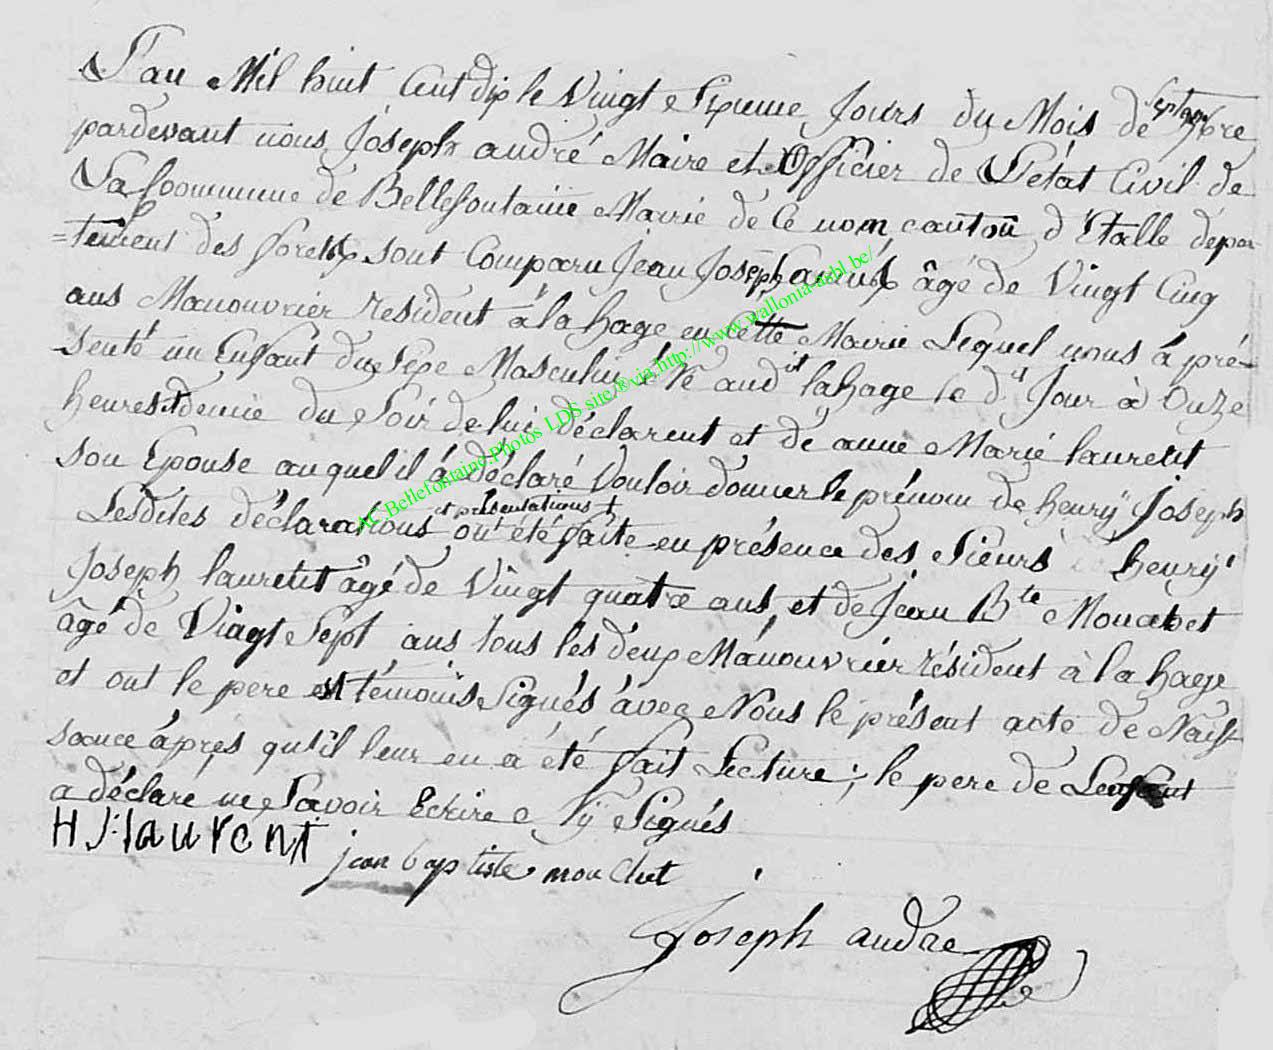 L'an Mil huit Cent dix le Vingt Sixieme Jours du Mois de Septembre
pardevant nous Joseph andré Maire et Officier de L'état Civil de
La Commune de Bellefontaine Mairie de Ce nom canton d'Etalle depar
=tement des forets sont Comparu Jean Joseph âgé de Vingt Cinq
ans Manouvrier résident à la hage en Cette Mairie Lequel nous à pré-
senté un Enfant du Sexe Masculin né aud it lahage le d it Jour à Onze
heures et demie du Soir de lui déclarent et de anne Marie laurent
son Epouse auquel il á déclaré Vouloir donner le prénom de henrÿ Joseph
et présentations
Lesdites déclarations ont été faite en présence des Sieurs henrÿ
Joseph laurent âgé de Vingt quatre ans, et de Jean Bte Mouchet
âgé de Vingt Sept ans tous les deux Manouvrier résident à la hage
et ont le pere et témoins Signés avec Nous le présent acte de Nais
sance áprés qu'il leur en a été fait Lecture; le pere de Lenfant
a déclaré ne Savoir Ecrire Nÿ Signés
H J laurent jean baptiste mouchet
Joseph andre
AC Bellefontaine.Photos LDS site,®via,http://www.wallonia-asbl.be/